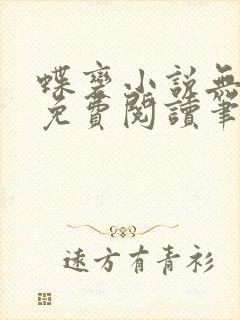 蝶變小說無
免費閱讀筆
遠方有青衫